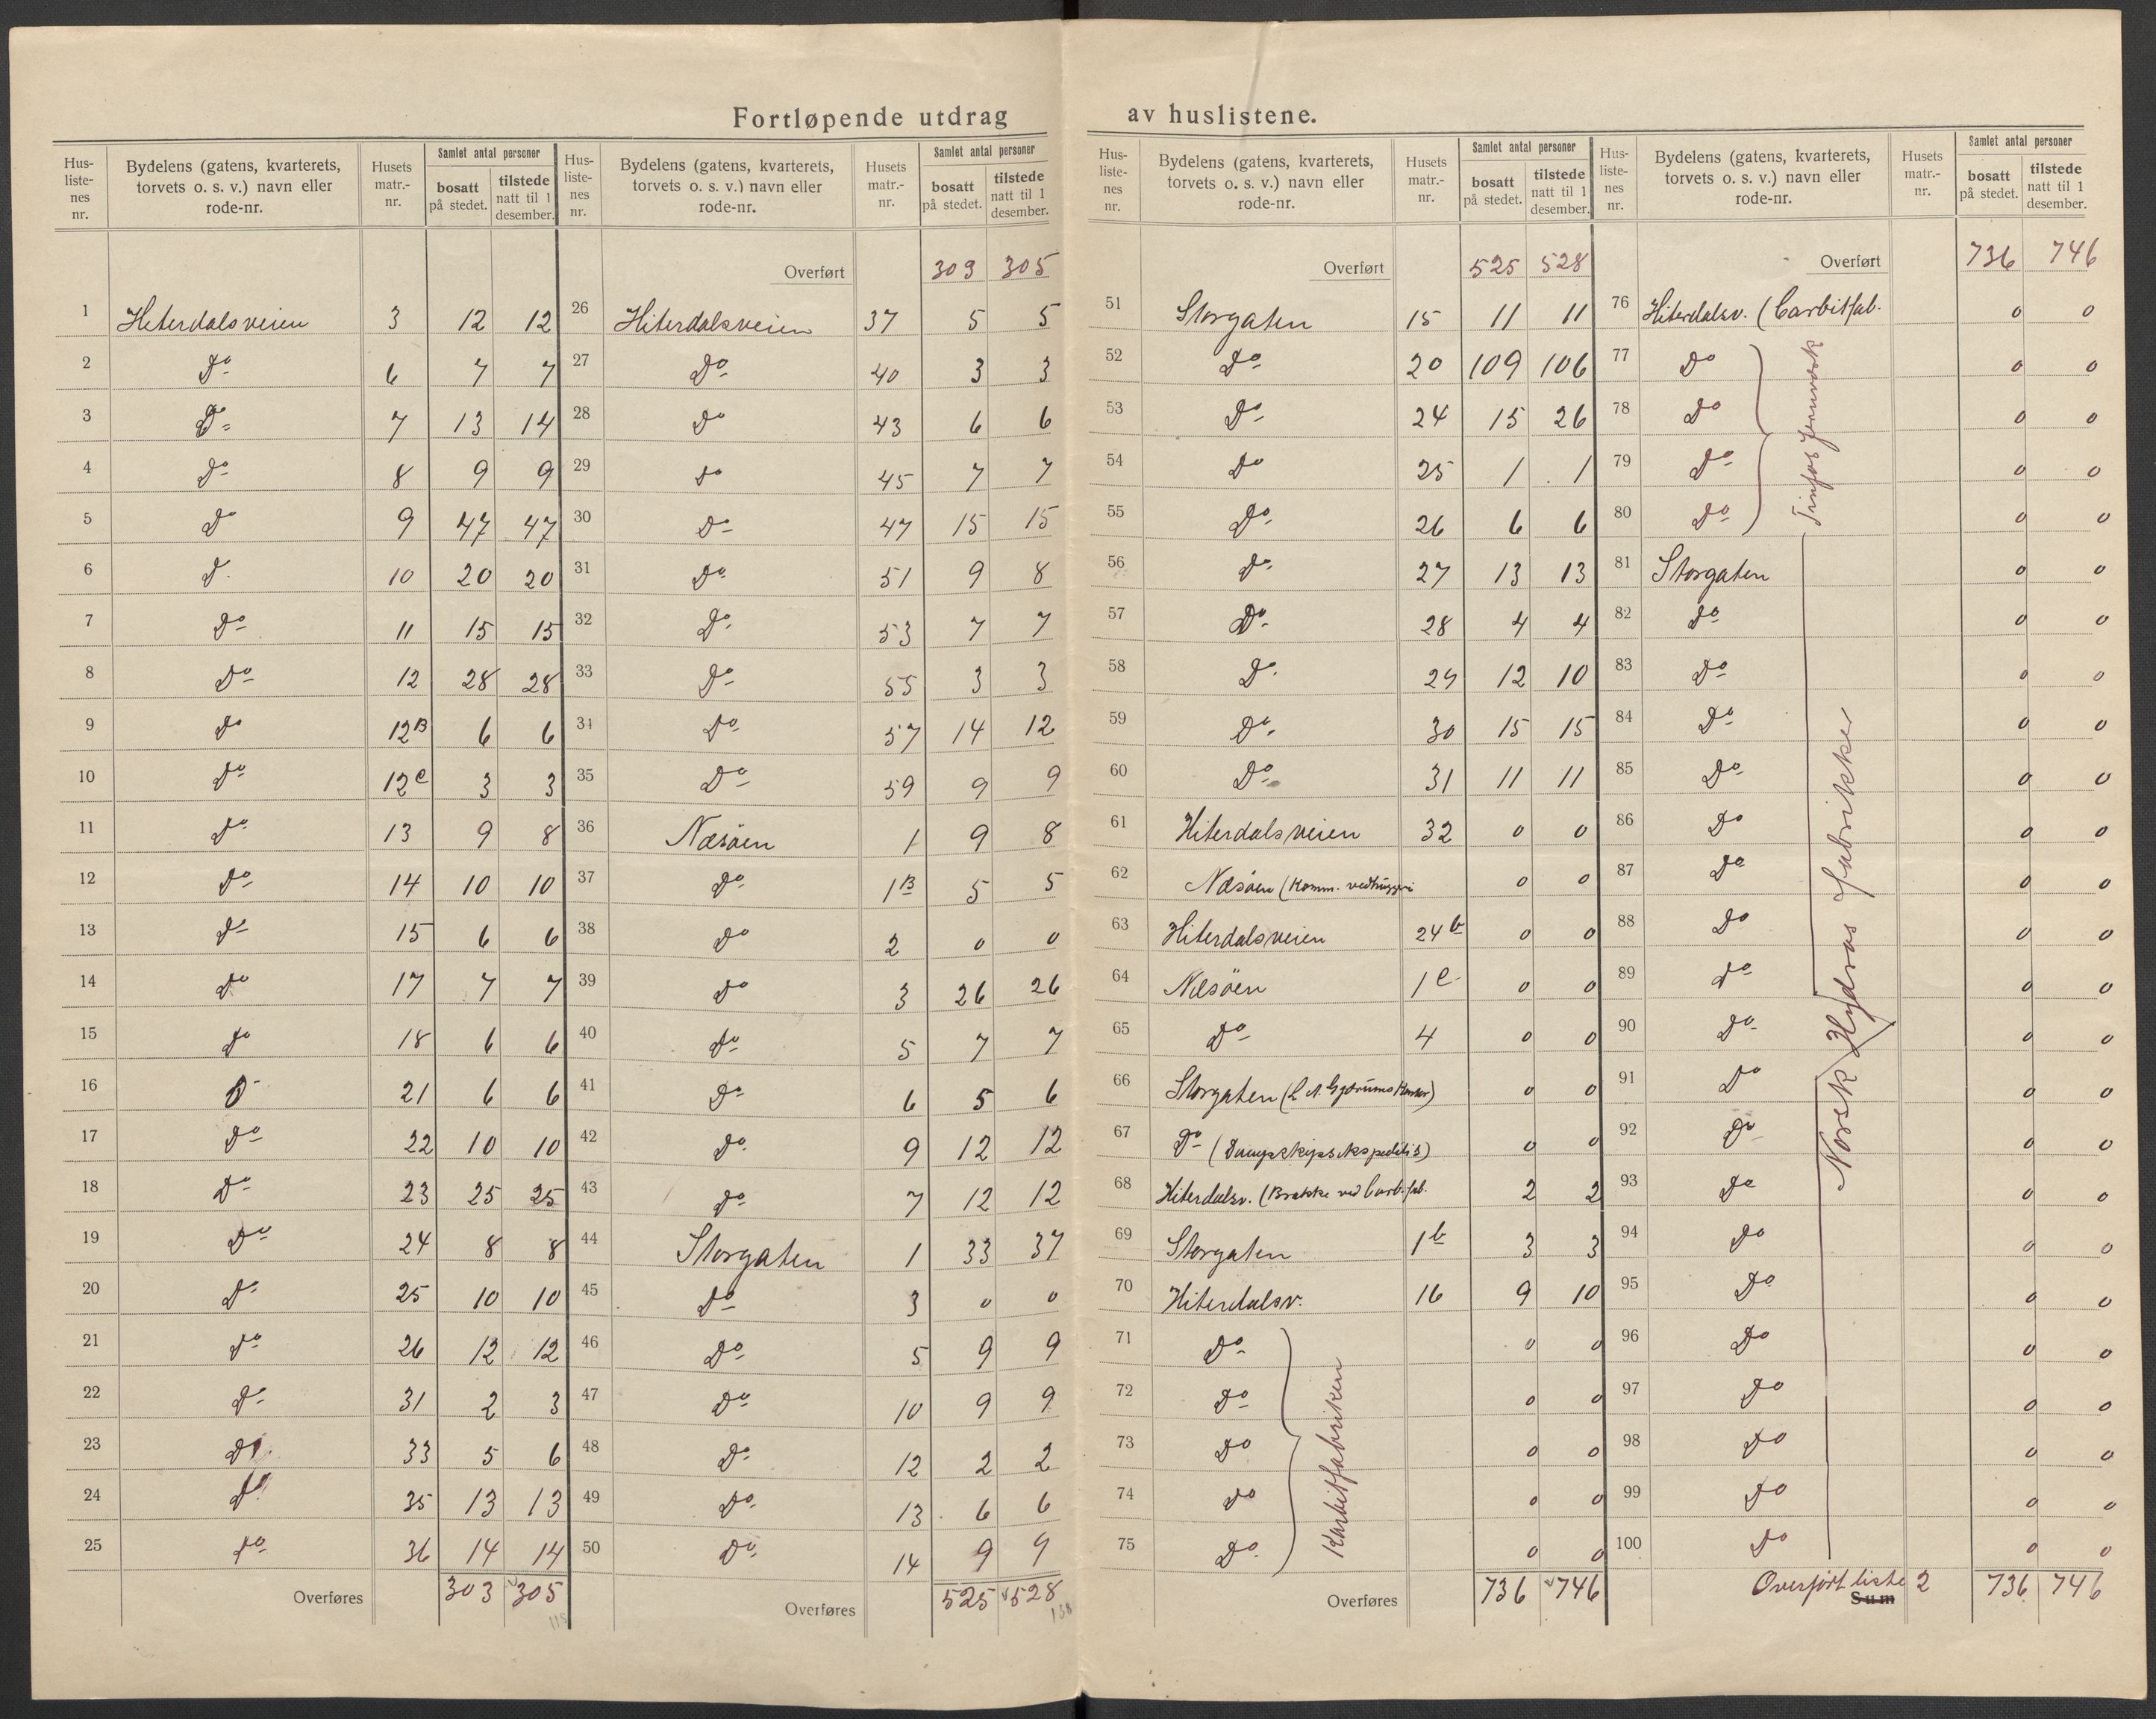 Fortløpende utdrag av huslistene.
Hus-liste-nes nr. | Bydelens (gatens, kvarterets, torvets o. s. v.) navn eller rode-nr. | Husets matr.-nr. | Samlet antal personer | bosatt på stedet. | tilstede natt til 1 desember.
1 Hiterdalsveien 3 12 12
2 Do 6 7 7
3 Do 7 13 14
4 Do 8 9 9
5 Do 9 47 47
6 D. 10 20 20
7 Do 11 15 15
8 Do 12 28 28
9 Do 12B 6 6
10 Do 12C 3 3
11 Do 13 9 8
12 Do 14 10 10
13 Do 15 6 6
14 Do 17 7 7
15 Do 18 6 6
16 D 21 6 6
17 Do 22 10 10
18 Do 23 25 25
19 Do 24 8 8
20 Do 25 10 10
21 Do 26 12 12
22 Do 31 2 3
23 Do 33 5 6
24 Do 35 13 13
25 Do 36 14 14
Overføres 303 305
115
Hus-liste-nes nr. | Bydelens (gatens, kvarterets, torvets o. s. v.) navn eller rode-nr. | Husets matr.-nr. | Samlet antal personer | bosatt på stedet. | tilstede natt til 1 desember.
Overført 303 305
26 Hiterdalsveien 37 5 5
27 Do 40 3 3
28 Do 43 6 6
29 Do 45 7 7
30 Do 47 15 15
31 Do 51 9 8
32 Do 53 7 7
33 Do 55 3 3
34 Do 57 14 12
35 Do 59 9 9
36 Næsöen 1 9 8
37 Do 1B 5 5
38 Do 2 0 0
39 Do 3 26 26
40 Do 5 7 7
41 Do 6 5 6
42 Do 9 12 12
43 Do 7 12 12
44 Storgaten 1 33 37
45 Do 3 0 0
46 Do 5 9 9
47 Do 10 9 9
48 Do 12 2 2
49 Do 13 6 6
50 Do 14 9 9
Overføres 525 528
138
Hus-liste-nes nr. | Bydelens (gatens, kvarterets, torvets o. s. v.) navn eller rode-nr. | Husets matr.-nr. | Samlet antal personer | bosatt på stedet. | tilstede natt til 1 desember.
Overført 525 528
51 Storgaten 15 11 11
52 Do 20 109 106
53 Do 24 15 26
54 Do 25 1 1
55 Do 26 6 6
56 Do 27 13 13
57 Do 28 4 4
58 Do 29 12 10
59 Do 30 15 15
60 Do 31 11 11
61 Hiterdalsveien 32 0 0
62 Næsöen (Komm. vedhuggeri 0 0
63 Hiterdalsveien 24b 0 0
64 Næsöen 1C 0 0
65 Do 4 0 0
66 Storgaten (L. A. 0 0
67 Do (Dampskipsekspeditis) 0 0
68 Hiterdalsv. (Brakke ved Carb.fab. 2 2
69 Storgaten 1b 3 3
70 Hiterdalsv. 16 9 10
71 Do 0 0
72 Do 0 0
73 Do 0 0
74 Do 0 0
75 Do 0 0
Karbitfabriken
Overføres 736 746
Hus-liste-nes nr. | Bydelens (gatens, kvarterets, torvets o. s. v.) navn eller rode-nr. | Husets matr.-nr. | Samlet antal personer | bosatt på stedet. | tilstede natt til 1 desember.
Overført 736 746
76 Hiterdalsv. (Carbitfab. 0 0
77 Do 0 0
78 Do 0 0
79 Do 0 0
80 Do 0 0
Tinfos Jernverk
81 Storgaten 0 0
82 Do 0 0
83 Do 0 0
84 Do 0 0
85 Do 0 0
86 Do 0 0
87 Do 0 0
88 Do 0 0
89 Do 0 0
90 Do 0 0
91 Do 0 0
92 Do 0 0
93 Do 0 0
94 Do 0 0
95 Do 0 0
96 Do 0 0
97 Do 0 0
98 Do 0 0
99 Do 0 0
100 Do 0 0
Norsk Hydros fabrikker
Overført liste 2 736 746
Sum